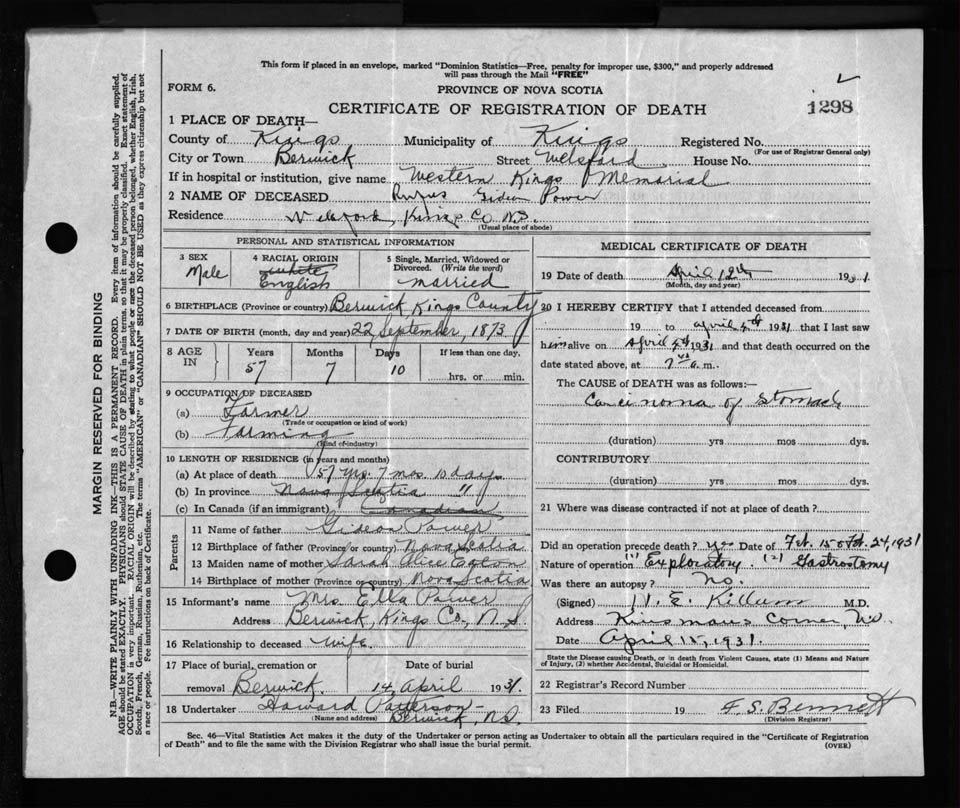 This form if placed in an envelope, marked "Dominion Statistics—Free, penalty for improper use, $300," and properly addressed
will pass through the Mail "FREE"
FORM 6.
PROVINCE OF NOVA SCOTIA
CERTIFICATE OF REGISTRATION OF DEATH
1298
1 PLACE OF DEATH—
County of Kings Municipality of Kings Registered No.
(For use of Registrar General only)
City or Town Berwick Street Welsford House No.
If in hospital or institution, give name Western Kings Memorial
2 NAME OF DECEASED Rufus Gideon Power
Residence Welsford, Kings Co. N.S.
(Usual place of abode)
PERSONAL AND STATISTICAL INFORMATION
3 SEX Male
4 RACIAL ORIGIN white English
5 Single, Married, Widowed or Divorced. (Write the word) married
6 BIRTHPLACE (Province or country) Berwick Kings County
7 DATE OF BIRTH (month, day and year) 22 September, 1873
8 AGE IN Years Months Days If less than one day,
57 7 10 hrs. or min.
9 OCCUPATION OF DECEASED
(a) Farmer
(Trade or occupation or kind of work)
(b) Farming
(Kind of industry)
10 LENGTH OF RESIDENCE (in years and months)
(a) At place of death 57 yrs. 7 mos. 10 days
(b) In province Nova Scotia "
(c) In Canada (if an immigrant) Canadian
Parents
11 Name of father Gideon Power
12 Birthplace of father (Province or country) Nova Scotia
13 Maiden name of mother Sarah Alice Eaton
14 Birthplace of mother (Province or country) Nova Scotia
15 Informant's name Mrs. Ella Power
Address Berwick, Kings Co., N.S.
16 Relationship to deceased wife
17 Place of burial, cremation or Date of burial
removal Berwick. 14 April 1931.
18 Undertaker Howard Patterson—
(Name and address) Berwick, N.S.
MEDICAL CERTIFICATE OF DEATH
19 Date of death April 12th 1931
(Month, day and year)
20 I HEREBY CERTIFY that I attended deceased from
19 to april 1931 that I last saw
him alive on April 1931 and that death occurred on the
date stated above, at 7 a.m.
The CAUSE OF DEATH was as follows:—
Carcinoma of Stomach
(duration) yrs mos dys.
CONTRIBUTORY
(duration) yrs mos dys.
21 Where was disease contracted if not at place of death?
Did an operation precede death? yes Date of Feb. 15 Feb. 24, 1931
Nature of operation (1) Exploratory. (2) Gastrostomy
Was there an autopsy? No.
(Signed) H. E. Killum M.D.
Address Kinsmans Corner, N.S.
Date April 15, 1931.
State the Disease causing Death, or in death from Violent Causes, state (1) Means and Nature
of Injury, (2) whether Accidental, Suicidal or Homicidal.
22 Registrar's Record Number
23 Filed 19 F. S. Bennett
(Division Registrar)
Sec. 46—Vital Statistics Act makes it the duty of the Undertaker or person acting as Undertaker to obtain all the particulars required in the "Certificate of Registration
of Death" and to file the same with the Division Registrar who shall issue the burial permit.
(OVER)
MARGIN RESERVED FOR BINDING
N.B.—WRITE PLAINLY WITH UNFADING INK—THIS IS A PERMANENT RECORD. Every item of information should be carefully supplied.
AGE should be stated EXACTLY. PHYSICIANS should STATE CAUSE OF DEATH in plain terms, so that it may be properly classified. Exact statement of
OCCUPATION is very important. RACIAL ORIGIN will be described by stating to what people or race the deceased person belonged, whether English, Irish,
Scotch, French, German, Russian, Ruthenian, etc. The terms "AMERICAN" or "CANADIAN" SHOULD NOT BE USED as they express citizenship but not
a race or people. Fee instructions on back of Certificate.